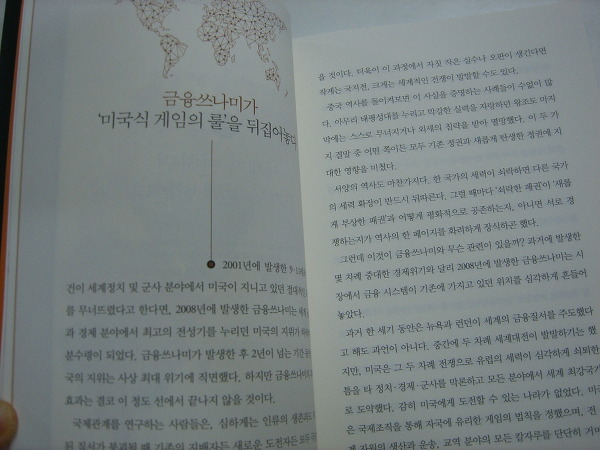 금융쓰나미가
'미국식 게임의 룰'을 뒤집어놓다
2001년에 발생한 9·11
건이 세계정치 및 군사 분야에서 미국이 지니고 있던 절대적
를 무너뜨렸다고 한다면, 2008년에 발생한 금융쓰나미는 세계
과 경제 분야에서 최고의 전성기를 누리던 미국의 지위가
분수령이 되었다. 금융쓰나미가 발생한 후 2년이 넘는 기간
국의 지위는 사상 최대 위기에 직면했다. 하지만 금융쓰나미
효과는 결코 이 정도 선에서 끝나지 않을 것이다.
국제관계를 연구하는 사람들은, 심하게는 인류의 생존
된 질서가 붕괴될 때 기존의 지배자든 새로운 도전자든 모두
을 것이다. 더욱이 이 과정에서 자칫 작은 실수나 오판이 생긴다면
작게는 국지전, 크게는 세계적인 전쟁이 발발할 수도 있다.
중국 역사를 돌이켜보면 이 사실을 증명하는 사례들이 수없이 많
다. 아무리 태평성대를 누리고 막강한 실력을 자랑하던 왕조도 마지
막에는 스스로 무너지거나 외세의 침략을 받아 멸망했다. 이 두 가
지 결말 중 어떤 쪽이든 모두 기존 정권과 새롭게 탄생한 정권에 지
대한 영향을 미쳤다.
서양의 역사도 마찬가지다. 한 국가의 세력이 쇠락하면 다른 국가
의 세력 확장이 반드시 뒤따른다. 그럴 때마다 '쇠락한 패권'이 '새롭
게 부상한 패권'과 어떻게 평화적으로 공존하는지, 아니면 서로 경
쟁하는지가 역사의 한 페이지를 화려하게 장식하곤 했다.
그런데 이것이 금융쓰나미와 무슨 관련이 있을까? 과거에 발생한
몇 차례 중대한 경제위기와 달리 2008년에 발생한 금융쓰나미는 시
장에서 금융 시스템이 기존에 가지고 있던 위치를 심각하게 흔들어
놓았다.
과거 한 세기 동안은 뉴욕과 런던이 세계의 금융질서를 주도했다
고 해도 과언이 아니다. 중간에 두 차례 세계대전이 발발하기는 했
지만, 미국은 그 두 차례 전쟁으로 유럽의 세력이 심각하게 쇠퇴한
틈을 타 정치·경제·군사를 막론하고 모든 분야에서 세계 최강국가
로 도약했다. 감히 미국에게 도전할 수 있는 나라가 없었다. 미국
은 국제조직을 통해 자국에 유리한 게임의 법칙을 정했으며, 전
계 자원의 생산과 운송, 교역 분야의 모든 칼자루를 단단히 거머